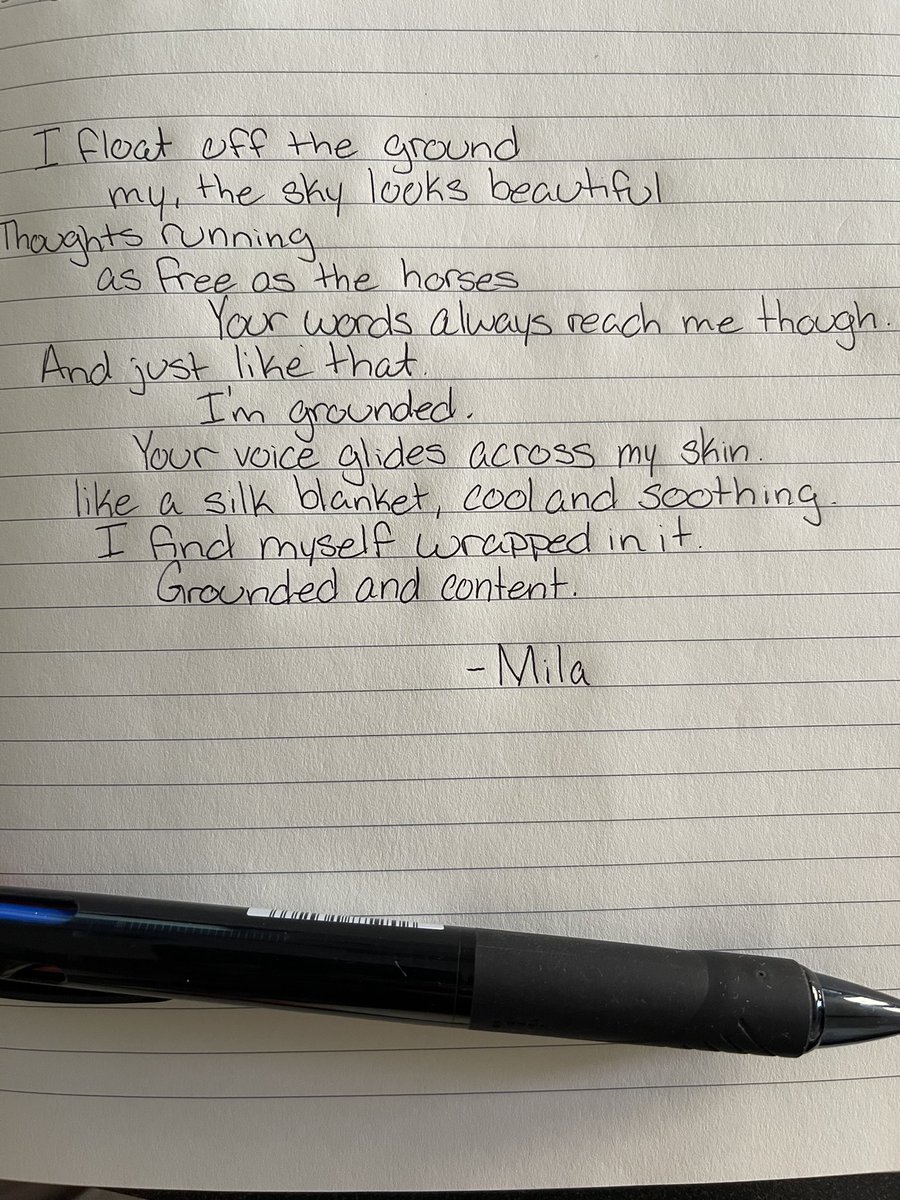 I float off the ground
my, the sky looks beautiful
Thoughts running
as free as the horses
Your words always reach me though.
And just like that.
I'm grounded.
Your voice glides across my skin.
like a silk blanket, cool and soothing.
I find myself wrapped in it.
Grounded and content.
- Mila